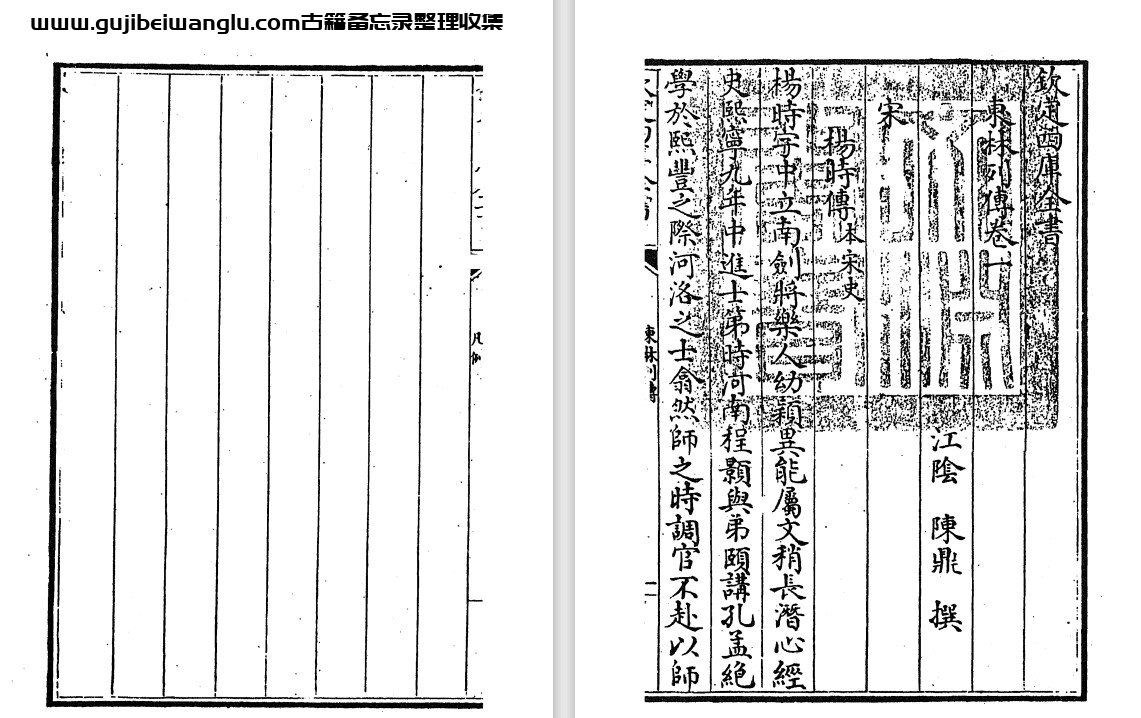 www.gujibeiwanglu.com古籍备忘录整理收集
欽定四庫全書
東林列傳卷一
江陰 陳鼎 撰
宋
楊時傳本宋史
楊時字中立南劍將樂人幼穎異能屬文稍長潛心經
史熙寧九年中進士第時河南程顥與弟頤講孔孟絕
學於熙豐之際河洛之士翕然師之時調官不赴以師
東林列傳
凡例